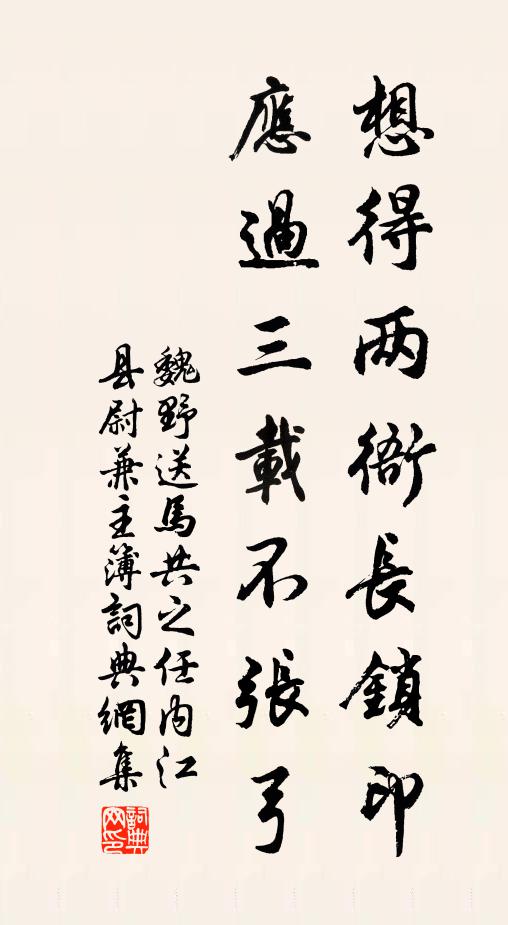 想得两衙長鎖印
應過三載不張弓
魏野送馬共之任内江
县尉兼主簿詞典網集
詞典网印